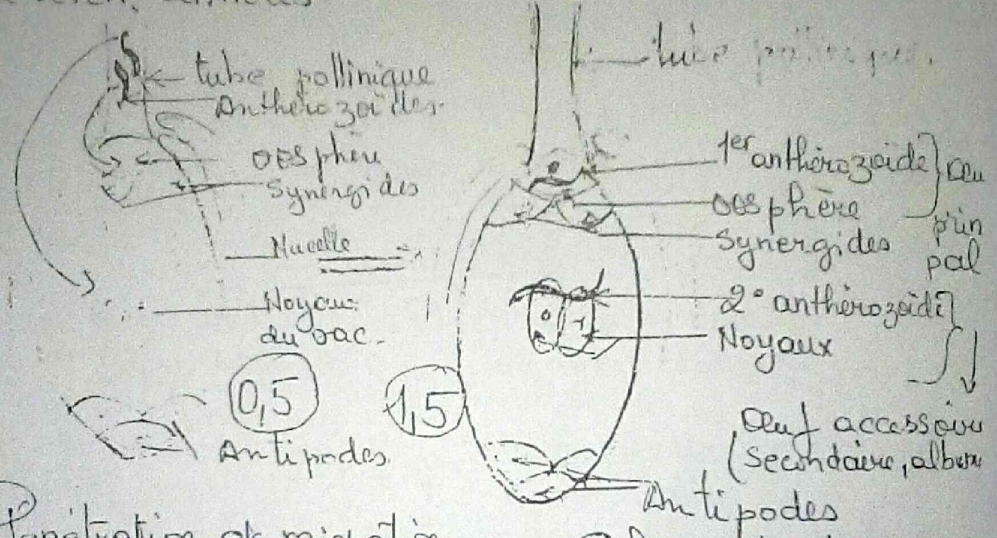 tube pollinique
Anthérozoïdes.
oesphère
Synergides
Nucelle
Noyaux
du sac.
0,5
Antipodes.
tube pollinique.
1er anthérozoïde
oesphère
Synergides
prin
pal
2° anthérozoïde
Noyaux
1,5
Oeuf accessoire
(secondaire, albumen
Antipodes
Pénétration